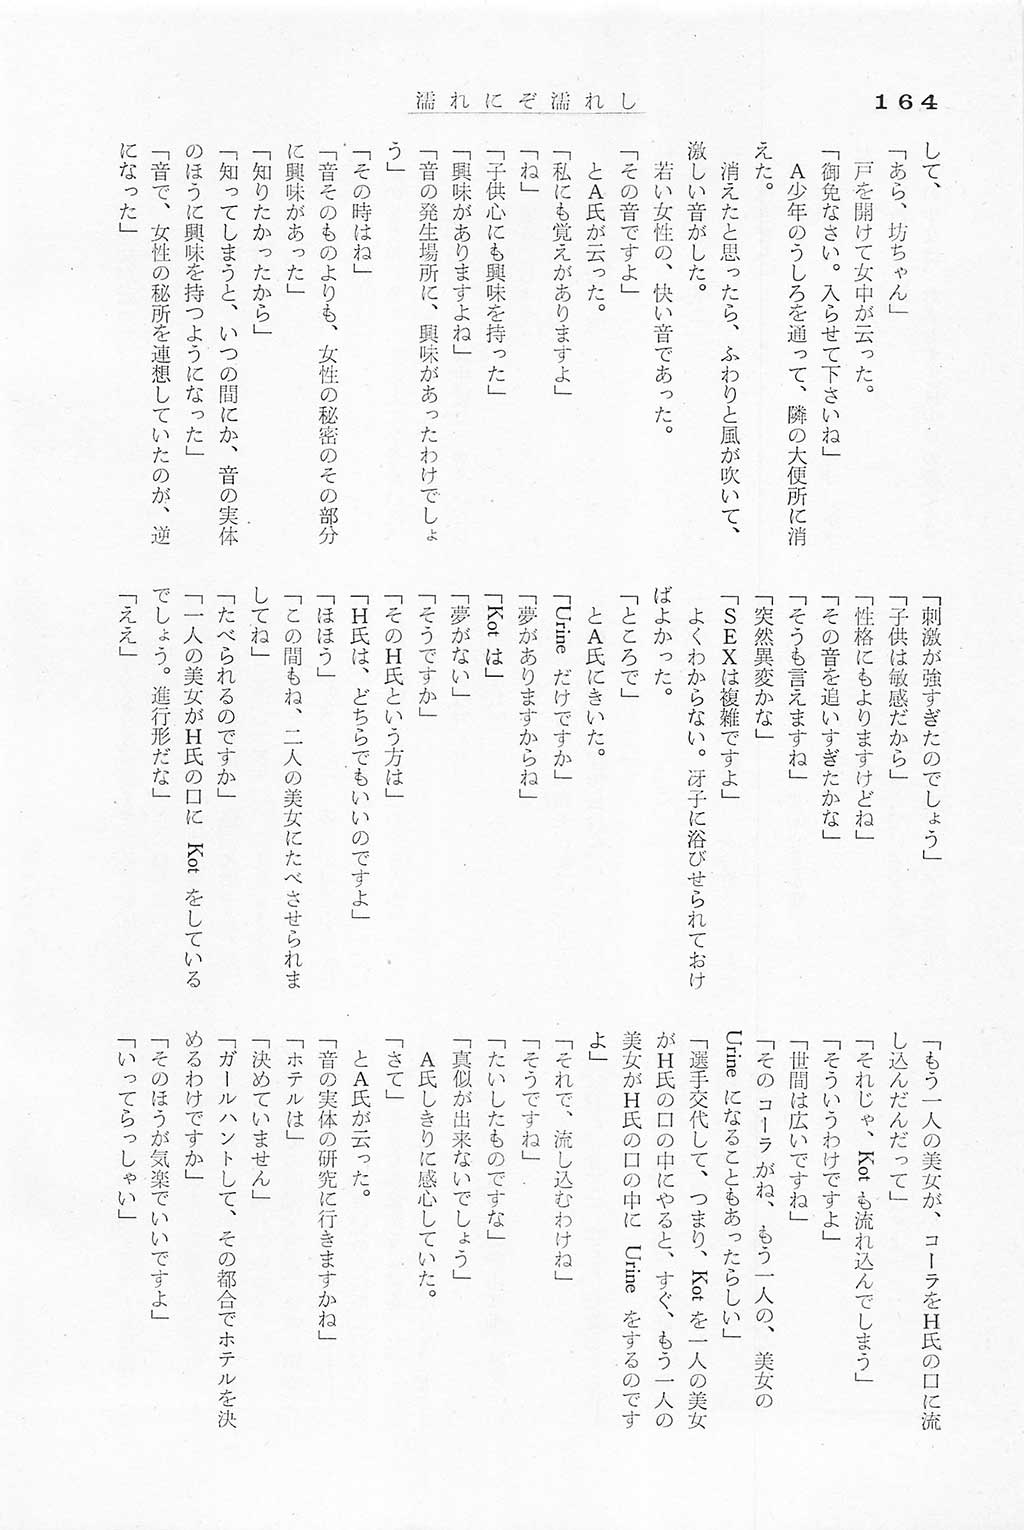 164
濡れにぞ濡れし
して、
「あら、坊ちゃん」
戸を開けて女中が云った。
「御免なさい。入らせて下さいね」
A少年のうしろを通って、隣の大便所に消
えた。
消えたと思ったら、ふわりと風が吹いて、
激しい音がした。
若い女性の、快い音であった。
「その音ですよ」
とA氏が云った。
「私にも覚えがありますよ」
「ね」
「子供心にも興味を持った」
「興味がありますよね」
「音の発生場所に、興味があったわけでしょ
う」
「その時はね」
「音そのものよりも、女性の秘密のその部分
に興味があった」
「知りたかったから」
「知ってしまうと、いつの間にか、音の実体
のほうに興味を持つようになった」
「音で、女性の秘所を連想していたのが、逆
になった」
「刺激が強すぎたのでしょう」
「子供は敏感だから」
「性格にもよりますけどね」
「その音を追いすぎたかな」
「そうも言えますね」
「突然異変かな」
「SEXは複雑ですよ」
よくわからない。冴子に浴びせられておけ
ばよかった。
「ところで」
とA氏にきいた。
「Urine だけですか」
「夢がありますからね」
「Kot は」
「夢がない」
「そうですか」
「そのH氏という方は」
「H氏は、どちらでもいいのですよ」
「ほほう」
「この間もね、二人の美女にたべさせられま
してね」
「たべられるのですか」
「一人の美女がH氏の口に Kot をしている
でしょう。進行形だな」
「ええ」
「もう一人の美女が、コーラをH氏の口に流
し込んだんだって」
「それじゃ、Kot も流れ込んでしまう」
「そういうわけですよ」
「世間は広いですね」
「そのコーラがね、もう一人の、美女の
Urine になることもあったらしい」
「選手交代して、つまり、Kot を一人の美女
がH氏の口の中にやると、すぐ、もう一人の
美女がH氏の口の中に Urine をするのです
よ」
「それで、流し込むわけね」
「そうですね」
「たいしたものですな」
「真似が出来ないでしょう」
A氏しきりに感心していた。
「さて」
とA氏が云った。
「音の実体の研究に行きますかね」
「ホテルは」
「決めていません」
「ガールハントして、その都合でホテルを決
めるわけですか」
「そのほうが気楽でいいですよ」
「いってらっしゃい」